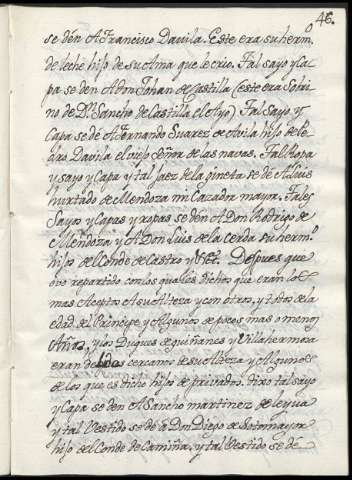 46.
se dén A Francisco Davila. Este era su hermo.
de leche hijo de su Ama que le crio. Tal sayo y ca
pa se den A don Johan de Castilla (este era Sobri
no de Dn. Sancho de Castilla el Ayo) Tal Sayo y
Capa se dé A Fernando Suarez de Avila hijo de Pe
dro Davila el viejo Señor de las navas. Tal Ropa
y sayo y Capa y tal jaez de la gineta se dé A Luis
hurtado de Mendoza mi Cazador mayor. Tales
Sayos y Capas y ropas se dén A Don Rodrigo de
Mendoza y A Don Luis de la Cerda su hermo.
hijo del Conde de Castro y Vsa. Despues que
ovo repartido con los quales dichos que eran los
mas Aceptos A su Alteza y con otros, y todos de la
edad del Principe y Algunos de pocos mas o menos
Años, y los Duques de quiñanes y Villahermosa
eran deudos cercanos de su Alteza y Algunos
de los que es dicho hijo de privados. dixo tal sayo
y Capa se den A Sancho martinez de leyva
y tal Vestido se dé a Dn Diego de Sotomayor
hijo del Conde de Camiña. y tal Vestido se dé